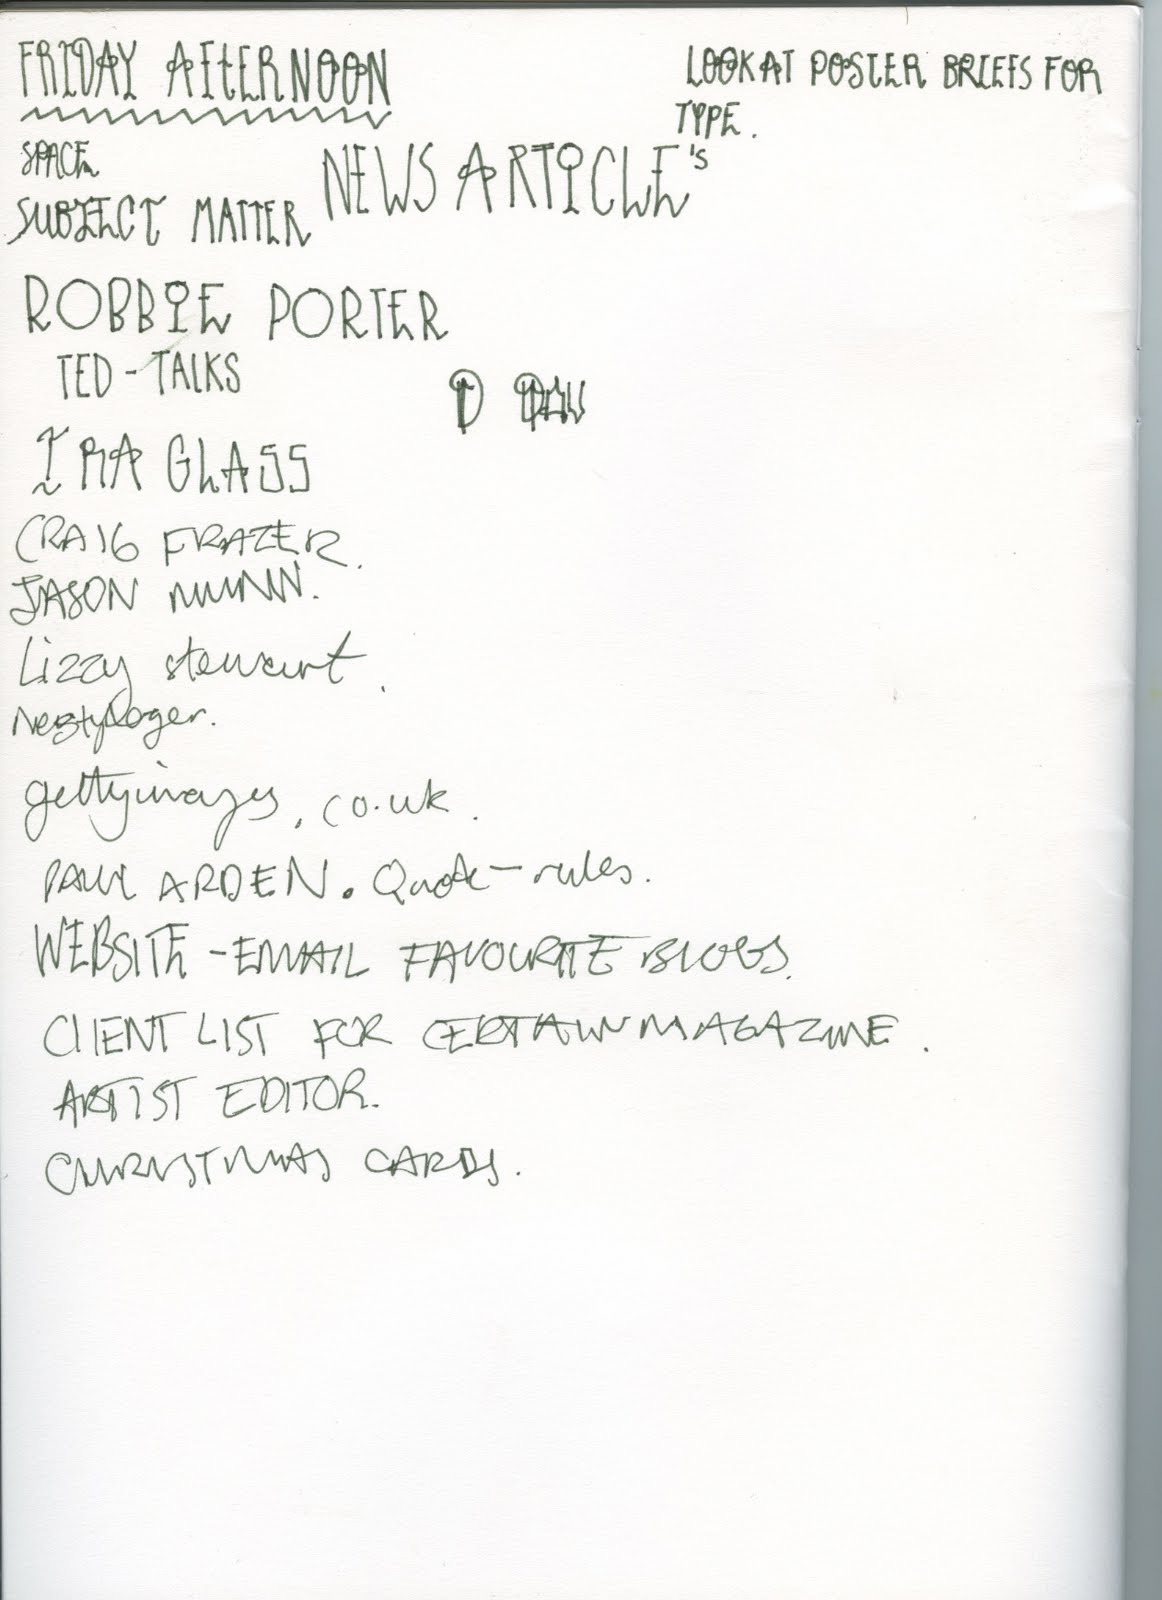 FRIDAY AFtERNOON
LOOK AT POSTER BRIEFS FOR
TYPE.
SPACE
NEWS ARTICLE's
SUBJECT MATTER
ROBBIE PORTER
TED - TALKS
D
IRA GLASS
CRAIG FRAZER.
JASON MUNN.
Lizzy stewart.
Roger.
gettyimages.co.uk.
PAUL ARDEN. Quote - rules.
WEBSITE - EMAIL FAVOURITE BLOGS.
CLIENT LIST FOR CERTAIN MAGAZINE.
ARTIST EDITOR.
CHRISTMAS CARDS.